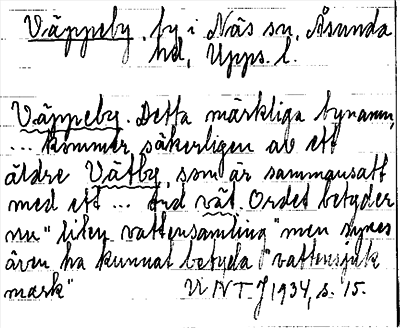 Väppeby, by i Näs sn, Åsunda
hd, Upps. l.
Väppeby. Detta märkliga bynamn,
... kommer säkerligen av ett
äldre Vätby, som är sammansatt
med ett ... ord vät. Ordet betyder
nu "liten vattensamling" men synes
även ha kunnat betyda "vattensjuk
mark" UNT. 1934, s. 15.